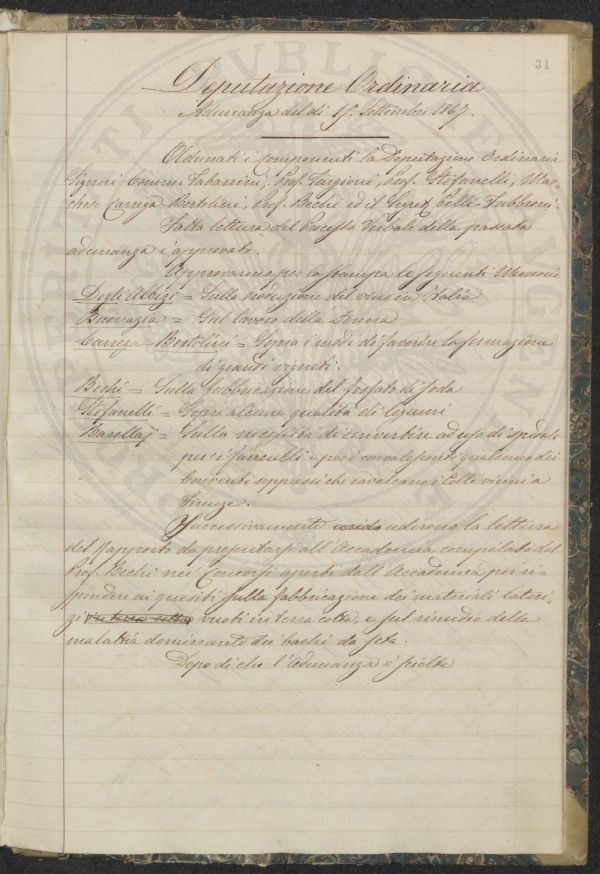 31
Deputazione Ordinaria
Adunanza del dì 15. Settembre 1867.
Adunati i componenti la Deputazione Ordinaria
Signori Comm. Tabarrini, Prof. Targioni, Prof. Stefanelli, Mar-
chese Carrega Bertolini, Prof. Bechi ed il Segret. Celli-Fabbroni.
Fatta lettura del Processo Verbale della passata
adunanza è approvato.
Approvarono per la stampa le seguenti Memorie
Degli Albizi = Sulla produzione del vino in Italia
Buonazia = Sul lavoro della Donna
Carrega Bertolini = Sopra i modi di favorire la formazione
di grandi vigneti.
Bechi = Sulla fabbricazione del fosfato di soda
Stefanelli = Sopra alcune qualità di legumi.
Barellai = Sulla necessità di convertire ad uso di spedale
per i fanciulli e per i convalescenti qualcuno dei
Conventi soppressi che cavalcano i Colli vicini a
Firenze.
Successivamente udirono la lettura
del Rapporto da presentarsi all'Accademia compilato dal
Prof. Bechi nei Concorsi aperti dall'Accademia per ri-
spondere ai quesiti sulla fabbricazione dei materiali lateri-
zi in terra cotta vuoti in terra cotta, e sul rimedio della
malattia dominante dei bachi da seta.
Dopo di che l'Adunanza è sciolta